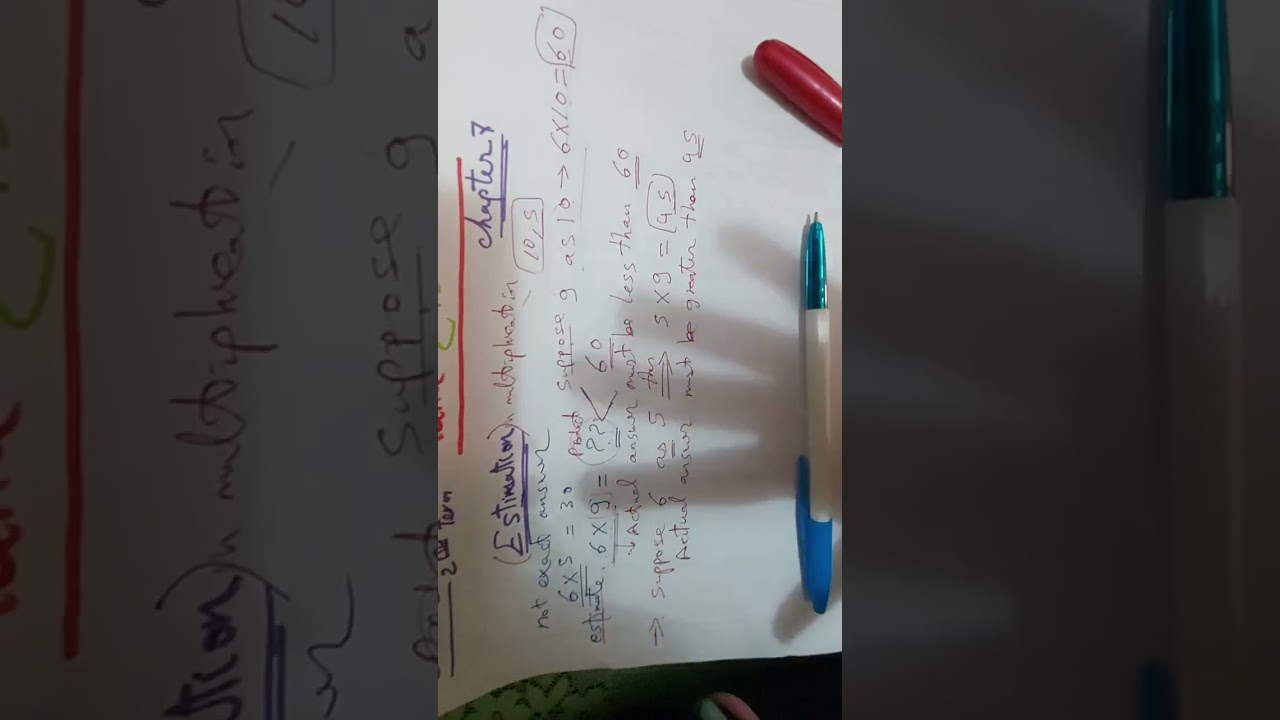 2nd Term
chapter 7
(Estimation) in multiplication 10, 5
not exact answer
6 x 5 = 30 suppose 9 as 10 → 6x10 = 60
estimate. 6 x 9 = (??) < 60
↓ Actual answer must be less than 60
→ suppose 6 as 5 ⇒ 5 x 9 = 45
Actual answer must be greater than 45